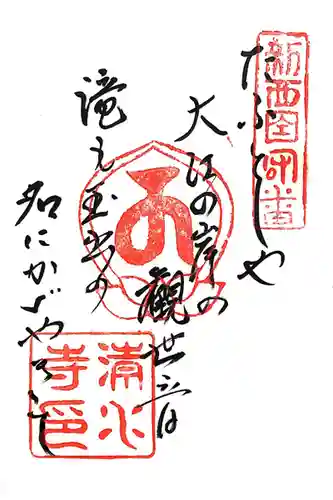 新西国客番
たふとしや
大江の岸の
觀世音
滝も玉出の
名にかゞや
清水
寺印